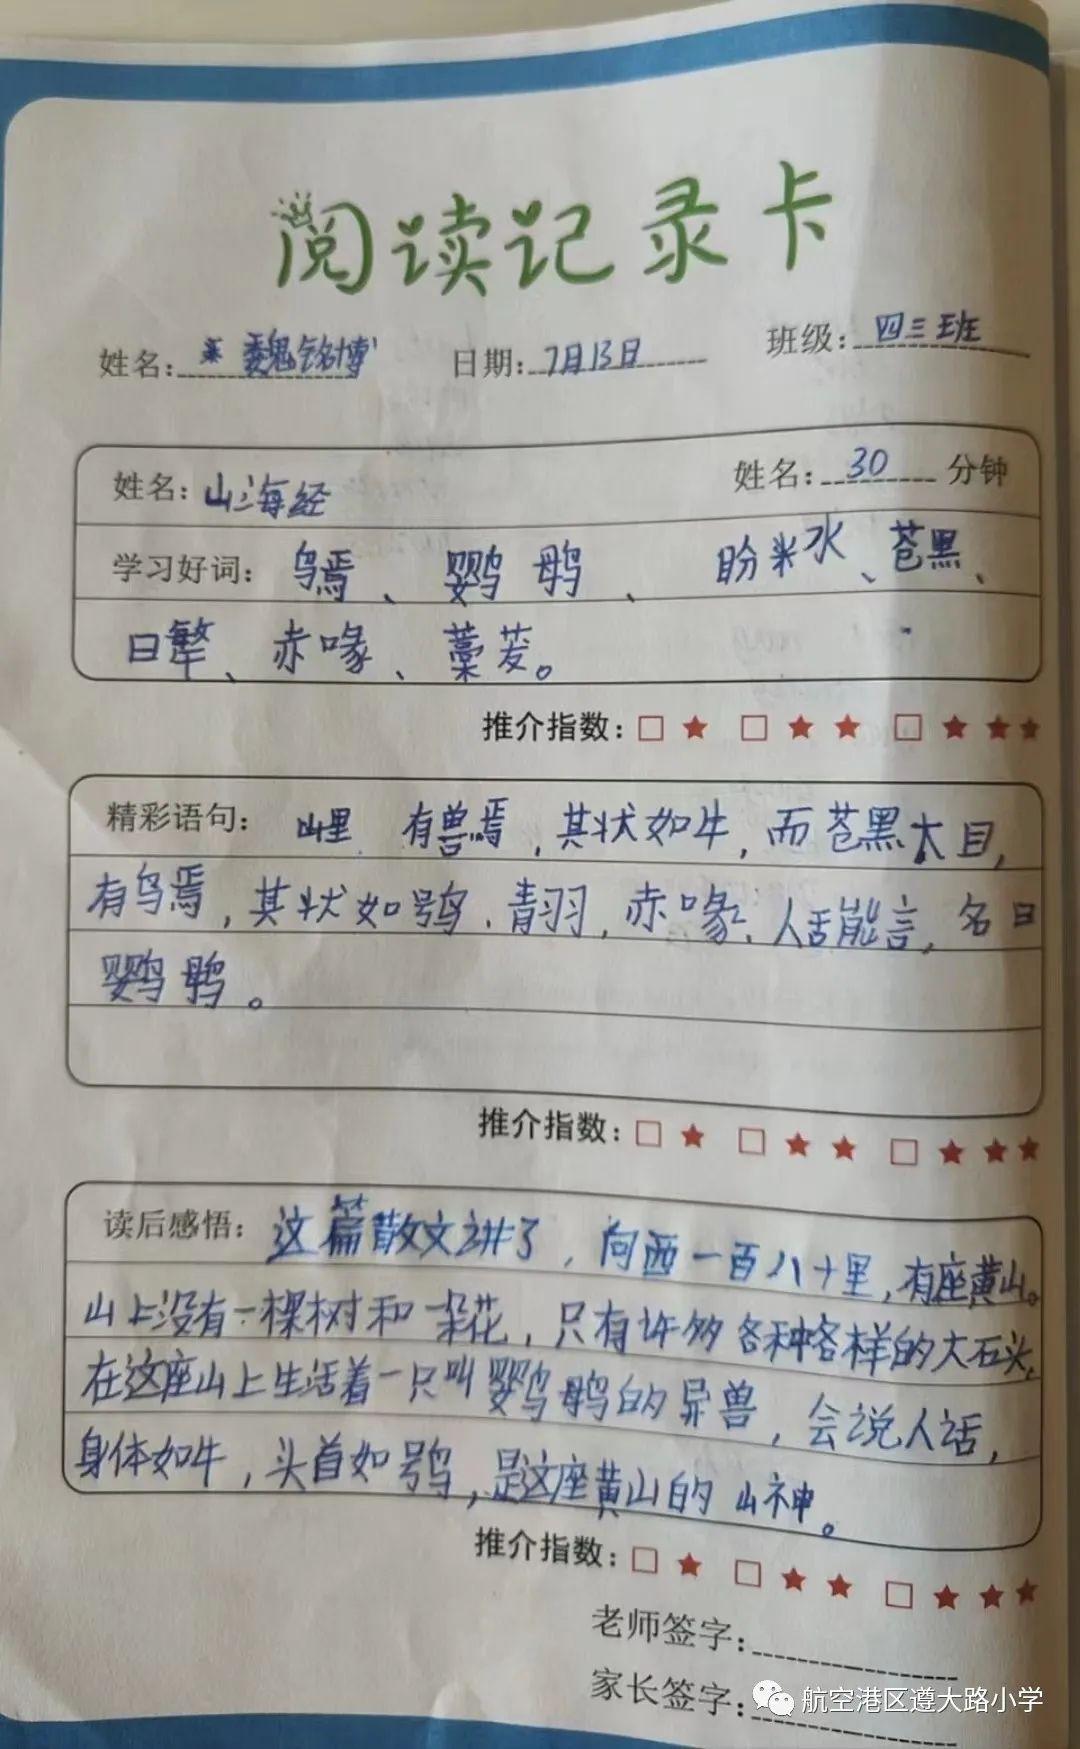 阅读记录卡
姓名: 魏铭博 日期: 7月13日 班级: 四三班
姓名: 山海经 姓名: 30 分钟
学习好词: 鸟焉、鹦鹉、盼水、苍黑、
曰擎、赤喙、藁茇。
推介指数: □★ □★★ □★★★
精彩语句: 山里 有兽焉,其状如牛,而苍黑大目,
有鸟焉,其状如鸮、青羽,赤喙、人舌能言,名曰
鹦鹉。
推介指数: □★ □★★ □★★★
读后感悟: 这篇散文讲了,向西一百八十里,有座黄山。
山上没有一棵树和一朵花,只有许多各种各样的大石头,
在这座山上生活着一只叫鹦鹉的异兽,会说人话,
身体如牛,头首如鸮,是这座黄山的山神。
推介指数: □★ □★★ □★★★
老师签字:
家长签字:
航空港区遵大路小学